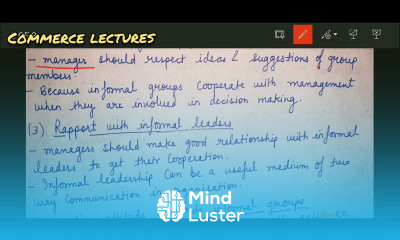 COMMERCE LECTURES
- manager should respect ideas & suggestions of group
members.
- Because informal groups cooperate with management
when they are involved in decision making.
(3) Rapport with informal leaders
- managers should make good relationship with informal
leaders to get their cooperation.
- Informal leadership can be a useful medium of two
way communication in organisation.
informal groups
Mind
Luster